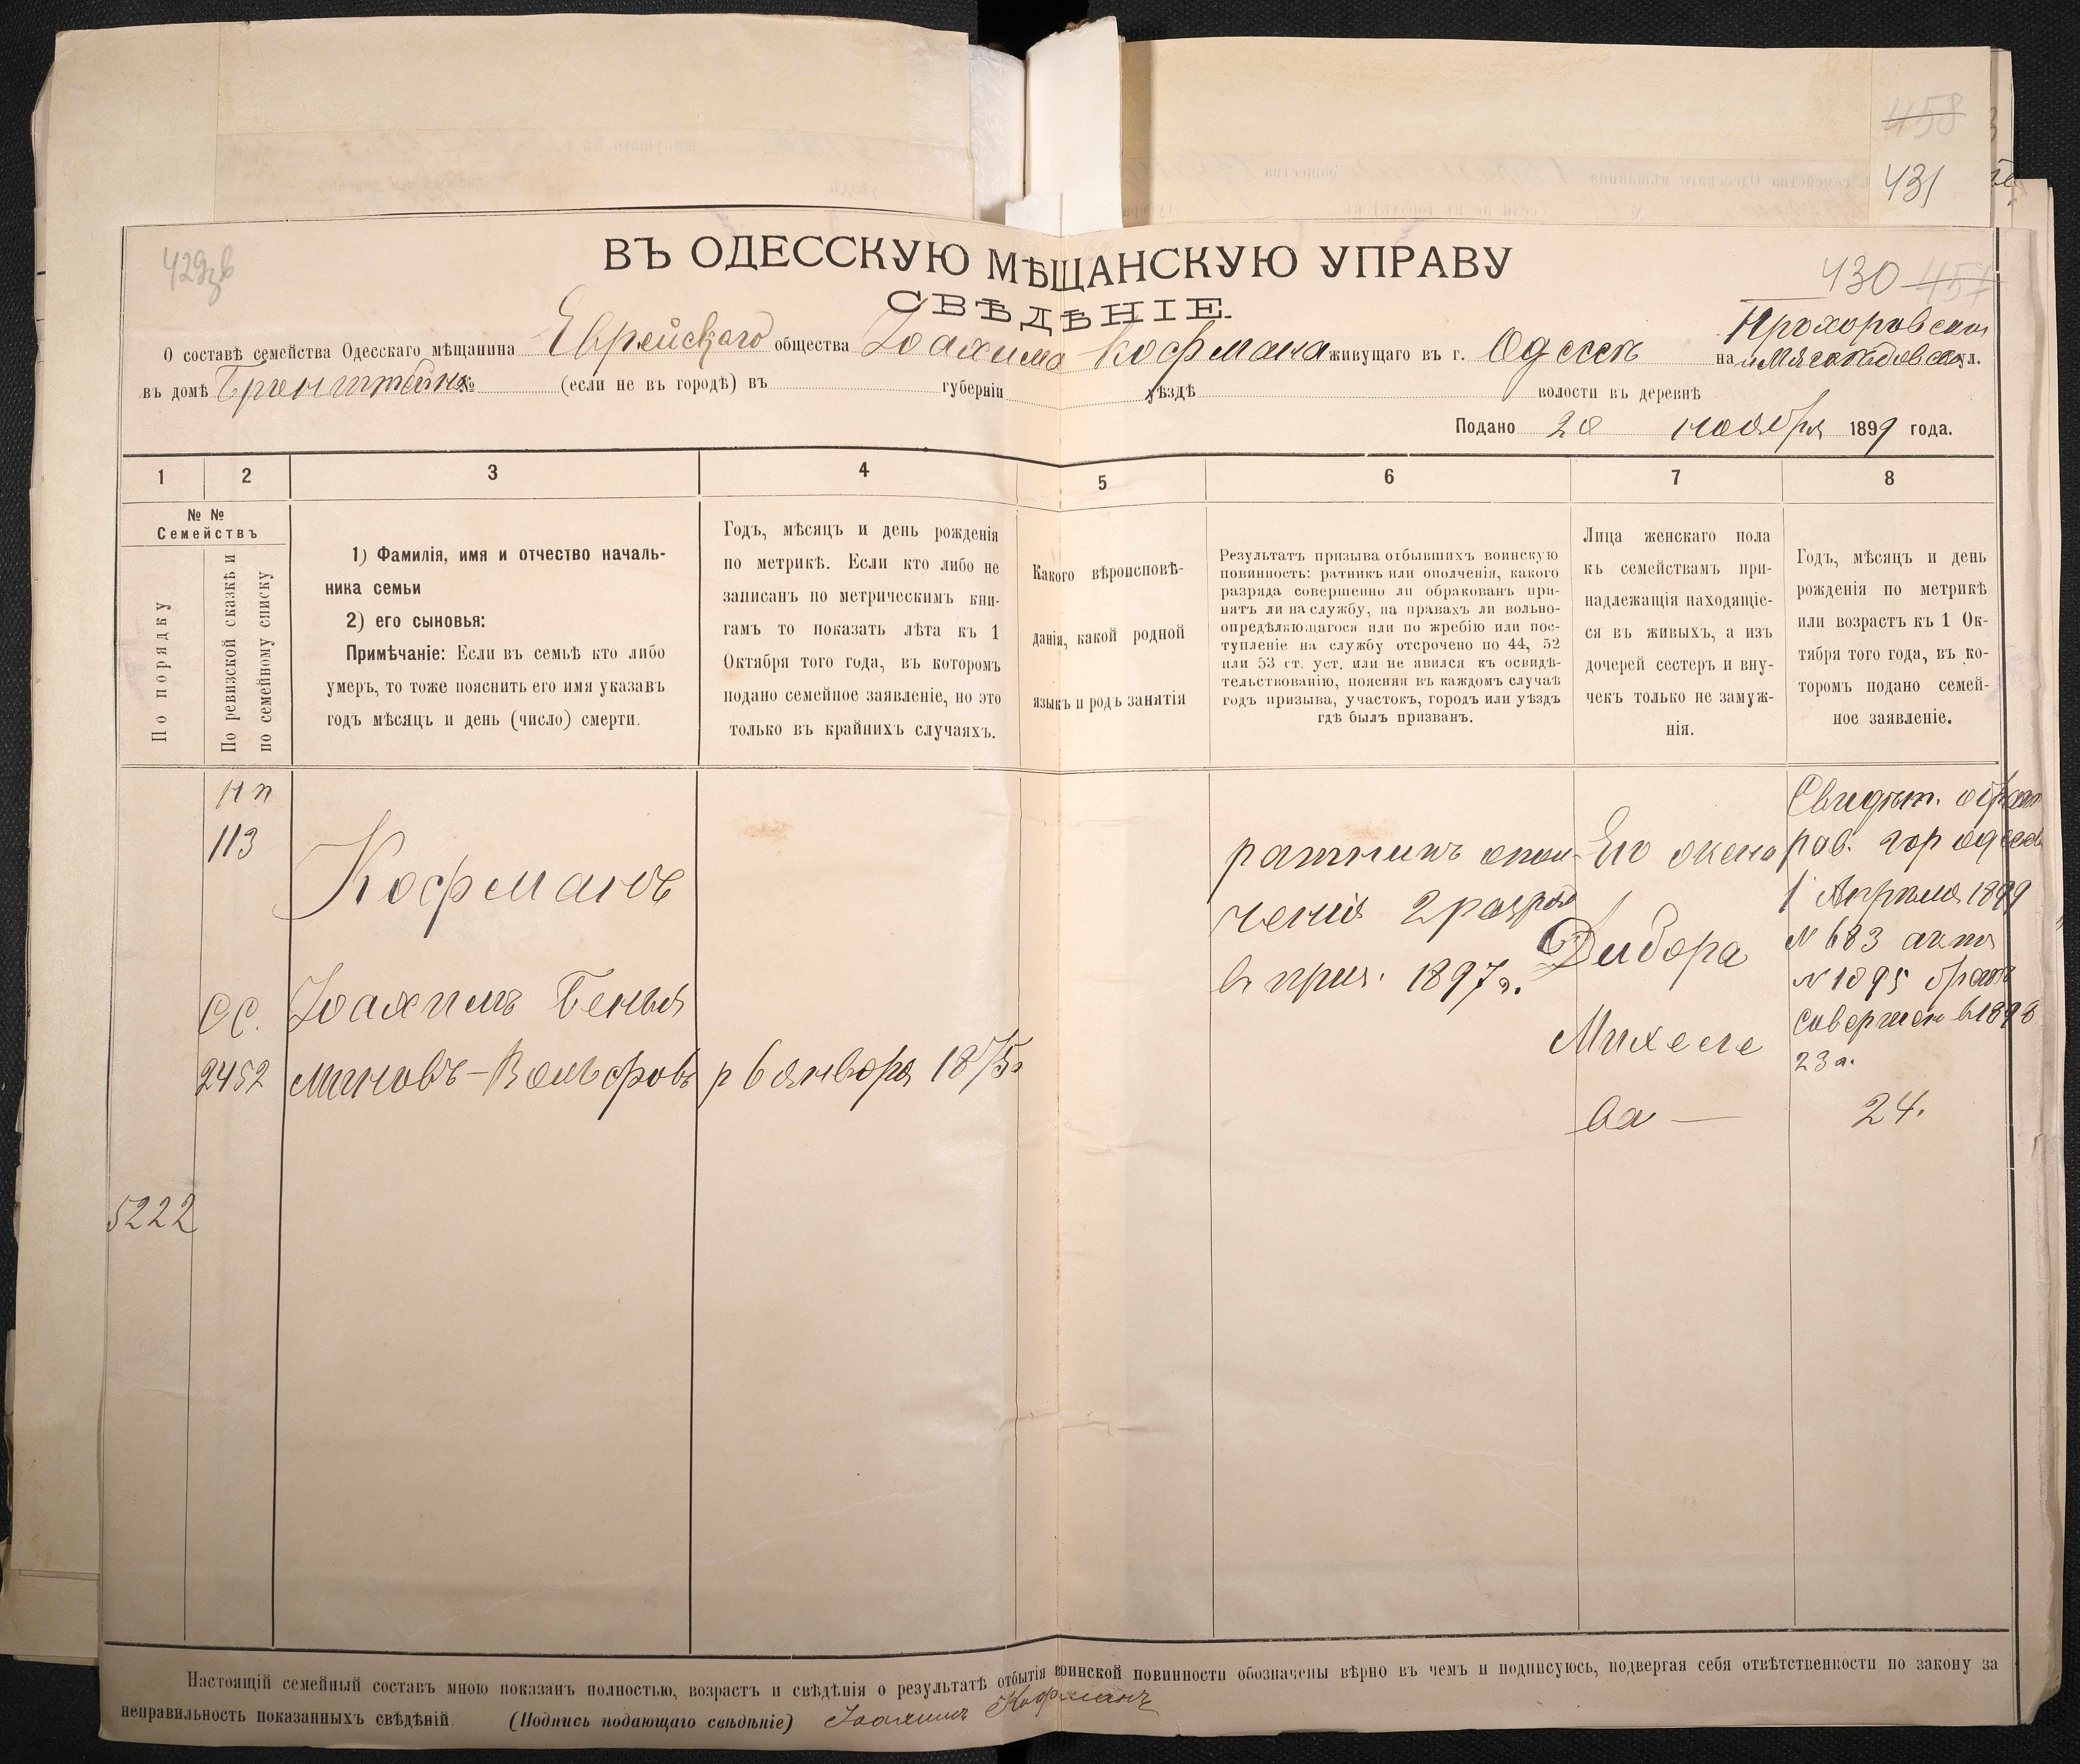 458
431
429зв
430 457
ВЪ ОДЕССКУЮ МѢЩАНСКУЮ УПРАВУ
СВѢДѢНІЕ.
О составѣ семейства Одесскаго мѣщанина Еврейскаго общества Іоахима Кофмана живущаго въ г. Одессѣ на Прохоровской и Мясоѣдовской ул.
въ домѣ № (если не въ городѣ) въ губерніи уѣздѣ волости въ деревнѣ
Подано 20 ноября 1899 года.
1 2 3 4 5 6 7 8
№ №
Семействъ
По порядку
По ревизской сказкѣ и
по семейному списку
1) Фамилія, имя и отчество началь-
ника семьи
2) его сыновья:
Примѣчаніе: Если въ семьѣ кто либо
умеръ, то тоже пояснить его имя указавъ
годъ мѣсяцъ и день (число) смерти.
Годъ, мѣсяцъ и день рожденія
по метрикѣ. Если кто либо не
записанъ по метрическимъ кни-
гамъ то показать лѣта къ 1
Октября того года, въ которомъ
подано семейное заявленіе, но это
только въ крайнихъ случаяхъ.
Какого вѣроисповѣ-
данія, какой родной
языкъ и родъ занятія
Результатъ призыва отбывшихъ воинскую
повинность: ратникъ или ополченія, какого
разряда совершенно ли обракованъ при-
нятъ ли на службу, на правахъ ли вольно-
опредѣляющагося или по жребію или пос-
тупленіе на службу отсрочено по 44, 52
или 53 ст. уст. или не явился къ освидѣ-
тельствованію, поясняя въ каждомъ случаѣ
годъ призыва, участокъ, городъ или уѣздъ
гдѣ былъ призванъ.
Лица женскаго пола
къ семействамъ при-
надлежащія находящіе-
ся въ живыхъ, а изъ
дочерей сестеръ и вну-
чекъ только не замуж-
нія.
Годъ, мѣсяцъ и день
рожденія по метрикѣ
или возрастъ къ 1 Ок-
тября того года, въ ко-
торомъ подано семей-
ное заявленіе.
нп
113
Кофманъ
ОС.
2452
Іоахимъ Бенья
миновъ-Вольфовъ
р 6 января 1875г
5222
ратникъ опол-
ченія 2 разряд
въ приз. 1897г.
Его жена
Двбора
Михеле
ва —
Свидѣт. общ
рав. гор Одессы
1 Апрѣля 1899
№ 683 акта
№ 1095 бракъ
совершен в 1898
23 а.
24.
Настоящій семейный составъ мною показанъ полностью, возрастъ и свѣдѣнія о результатѣ отбытія воинской повинности обозначены вѣрно въ чемъ и подписуюсь, подвергая себя отвѣтственности по закону за
неправильность показанныхъ свѣдѣній. (Подпись подающаго свѣдѣніе) Іоахимъ Кофманъ